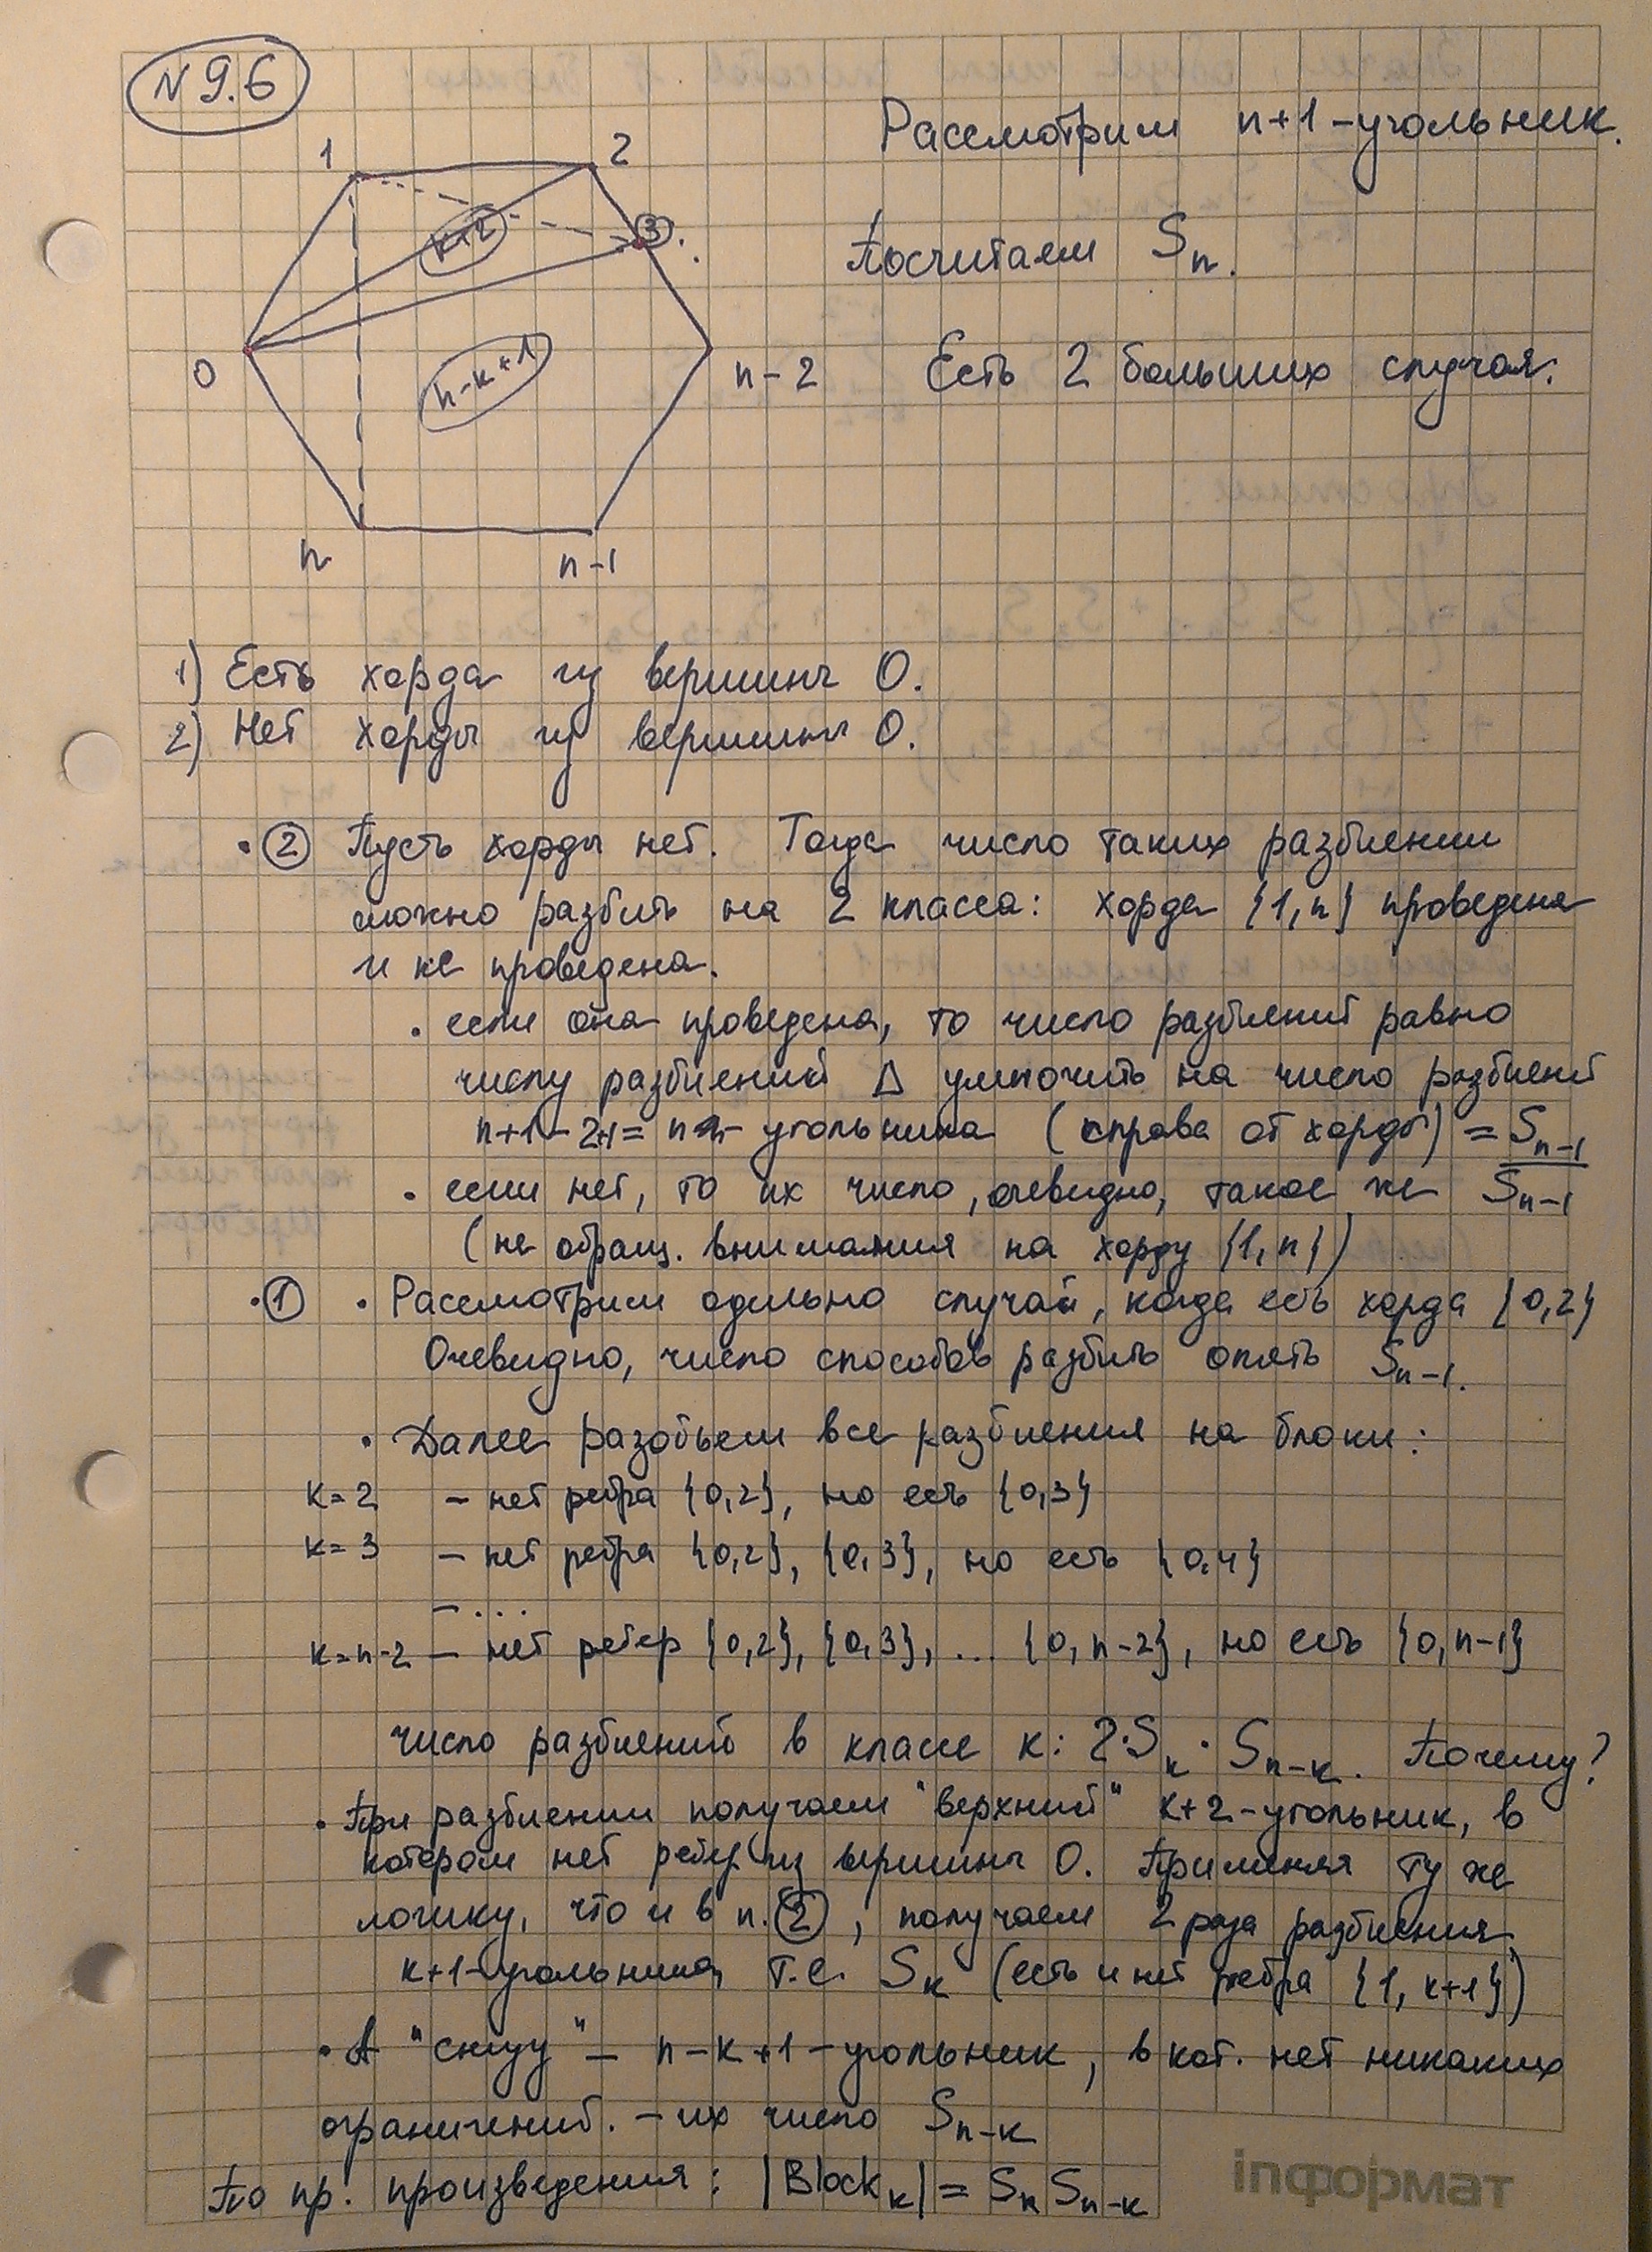 N 9.6
Рассмотрим n+1-угольник.
1 2
k+2 3
Посчитаем Sₙ.
0 n-k+1 n-2
Есть 2 больших случая:
n n-1
1) Есть хорда из вершины 0.
2) Нет хорды из вершины 0.
• ② Пусть хорды нет. Тогда число таких разбиении
можно разбить на 2 класса: хорда {1,n} проведена
и не проведена.
• если она проведена, то число разбиений равно
числу разбиений Δ умножить на число разбиений
n+1-2+1= n - угольника (справа от хорды) = Sₙ₋₁
• если нет, то их число, очевидно, такое же Sₙ₋₁
(не обращ. внимания на хорду {1,n})
• ① • Рассмотрим одельно случай, когда есть хорда {0,2}
Очевидно, число способов разбить опять Sₙ₋₁.
• Далее разобьем все разбиения на блоки:
k=2 – нет ребра {0,2}, но есть {0,3}
k=3 – нет ребра {0,2}, {0,3}, но есть {0,4}
– ...
k=n-2 – нет ребер {0,2}, {0,3}, ... {0,n-2}, но есть {0,n-1}
число разбиений в классе k: 2·Sₖ·Sₙ₋ₖ. Почему?
• При разбиении получаем "верхний" k+2-угольник, в
котором нет ребер из вершины 0. Применяя ту же
логику, что и в п. ②, получаем 2 раза разбиения
k+1-угольника, т.е. Sₖ (есть и нет ребра {1, k+1})
• А "снизу" – n-k+1-угольник, в кот. нет никаких
ограничений. – их число Sₙ₋ₖ
По пр. произведения: |Blockₖ| = Sₖ Sₙ₋ₖ
inформат